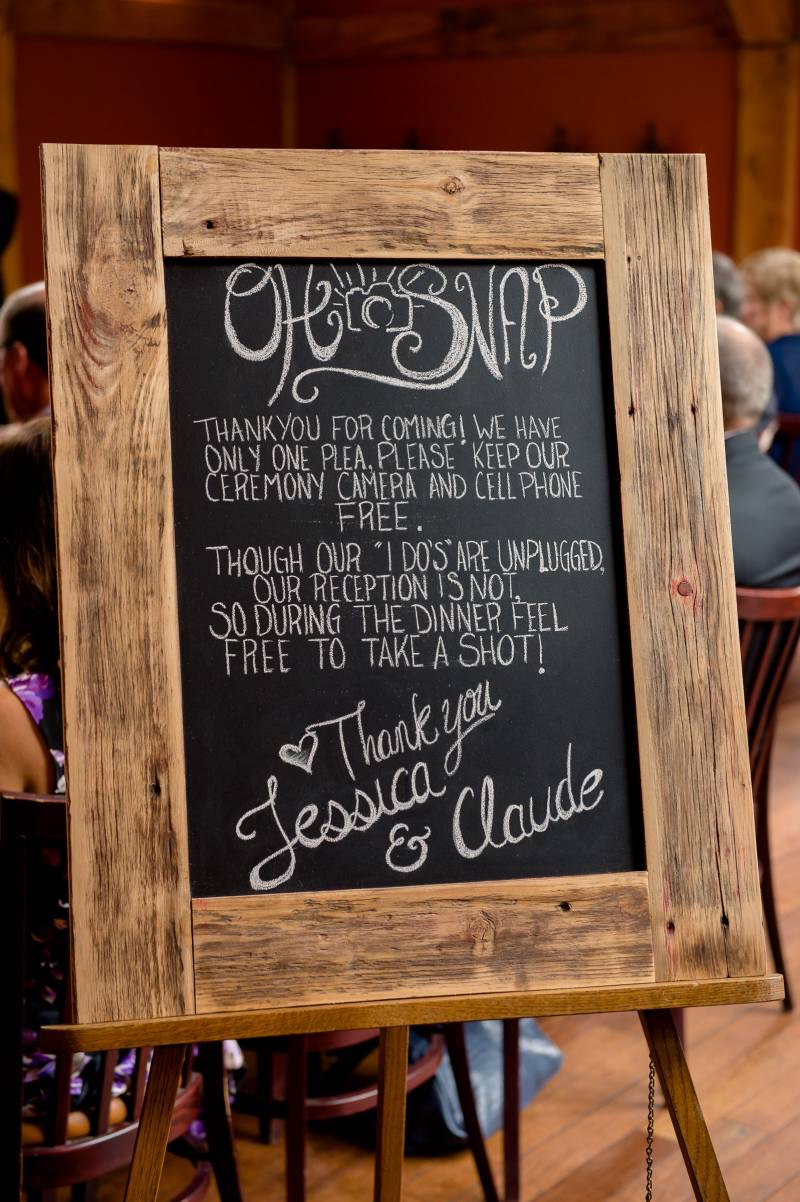 OH SNAP
THANKYOU FOR COMING! WE HAVE
ONLY ONE PLEA, PLEASE KEEP OUR
CEREMONY CAMERA AND CELLPHONE
FREE.
THOUGH OUR "I DO'S" ARE UNPLUGGED,
OUR RECEPTION IS NOT,
SO DURING THE DINNER FEEL
FREE TO TAKE A SHOT!
Thank you
Jessica
& Claude